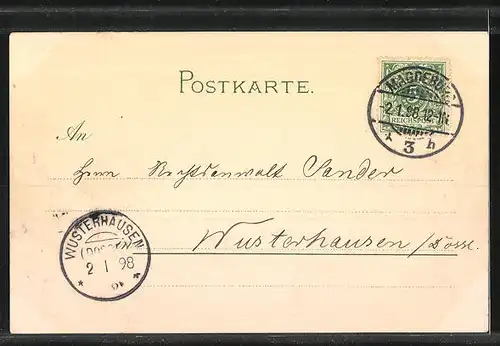 POSTKARTE.
MAGDEBURG
-2.1.98.12-1N.
* 3 h
5
REICHSPOST
An
Herrn Rechtsanwalt Sander
Wusterhausen /Dosse.
WUSTERHAUSEN
(DOSSE)
2 1 98
* *